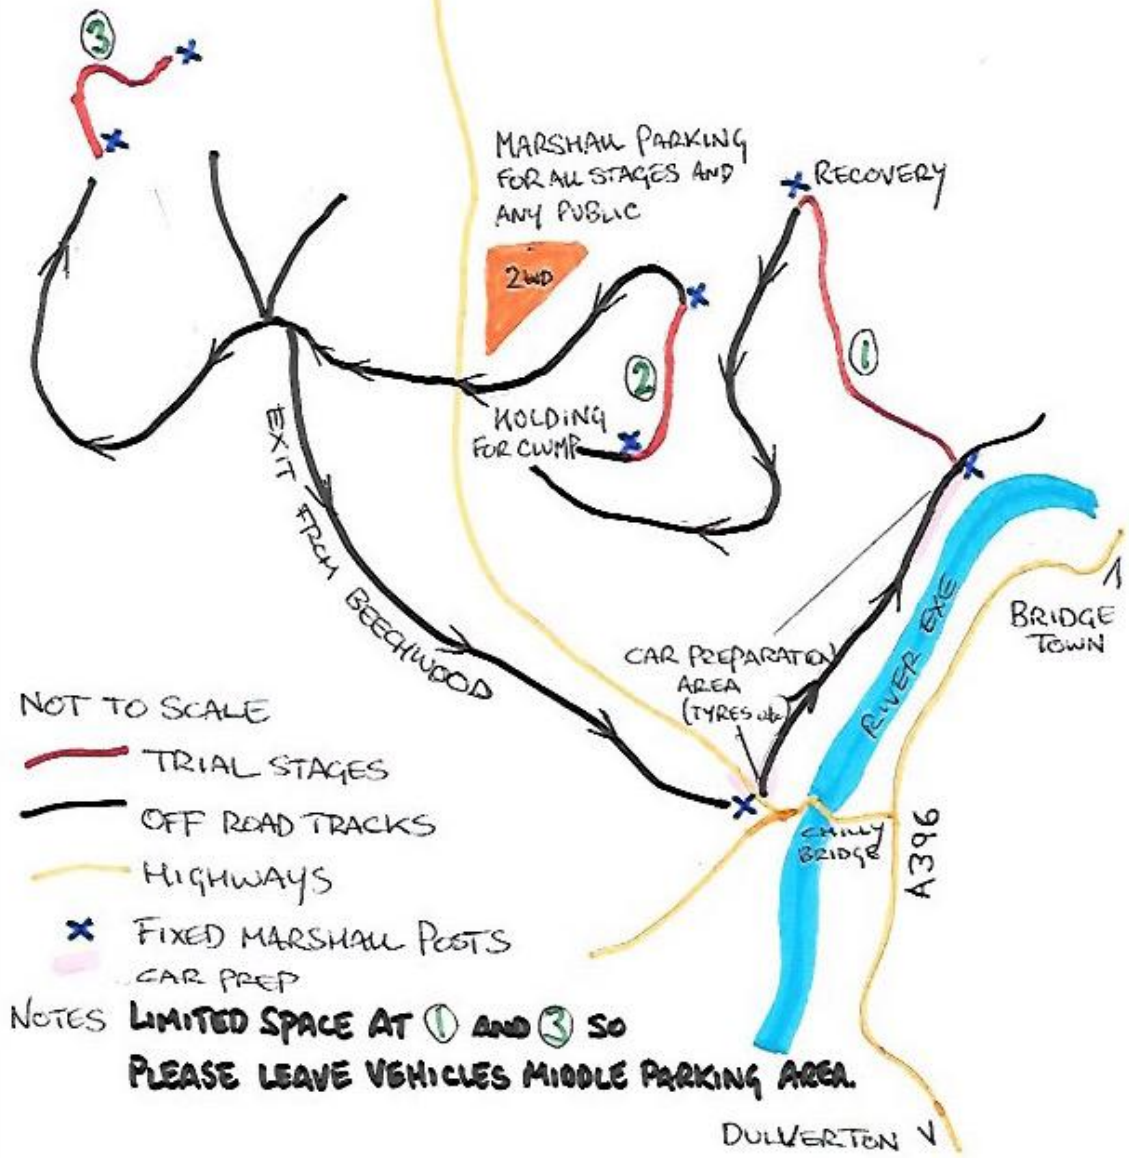 3
MARSHALL PARKING
FOR ALL STAGES AND
ANY PUBLIC
2WD
RECOVERY
1
2
HOLDING
FOR CLUMP
EXIT FROM BEECHWOOD
CAR PREPARATION
AREA
(TYRES etc)
RIVER EXE
BRIDGE
TOWN
CHILLY
BRIDGE
A396
NOT TO SCALE
TRIAL STAGES
OFF ROAD TRACKS
HIGHWAYS
FIXED MARSHALL POSTS
CAR PREP
NOTES LIMITED SPACE AT 1 AND 3 SO
PLEASE LEAVE VEHICLES MIDDLE PARKING AREA.
DULVERTON